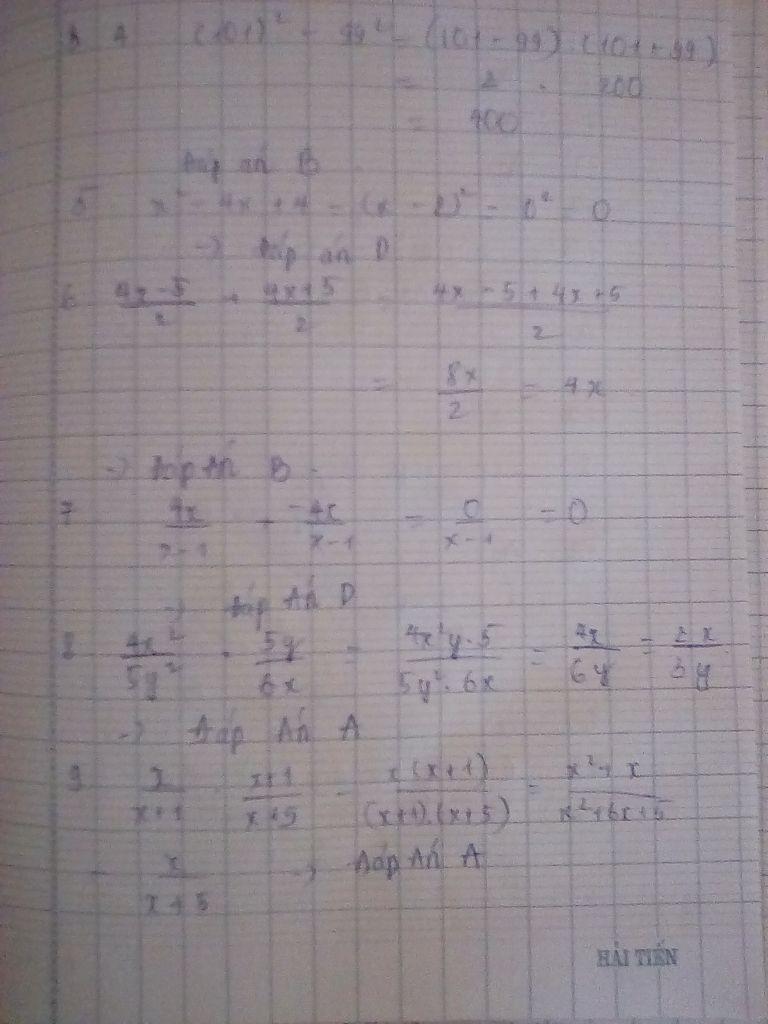 4 (101)² - 99² = (101 - 99) (101 + 99)
= 2 . 200
= 400
Đáp án B
5 x² - 4x + 4 = (x - 2)² = 0² = 0
→ Đáp án D
6 4x - 5/2 + 4x + 5/2 = 4x - 5 + 4x + 5/2
= 8x/2 = 4x
→ Đáp Án B
7 4x/x - 1 + -4x/x - 1 = 0/x - 1 = 0
→ Đáp Án D
8 4x²/5y² . 5y/6x = 4x²y.5/5y².6x = 4x/6y = 2x/3y
→ Đáp Án A
9 x/x+1 . x+1/x+5 = x(x+1)/(x+1).(x+5) = x²+x/x²+6x+5
= x/x+5 → Đáp Án A
HẢI TIẾN